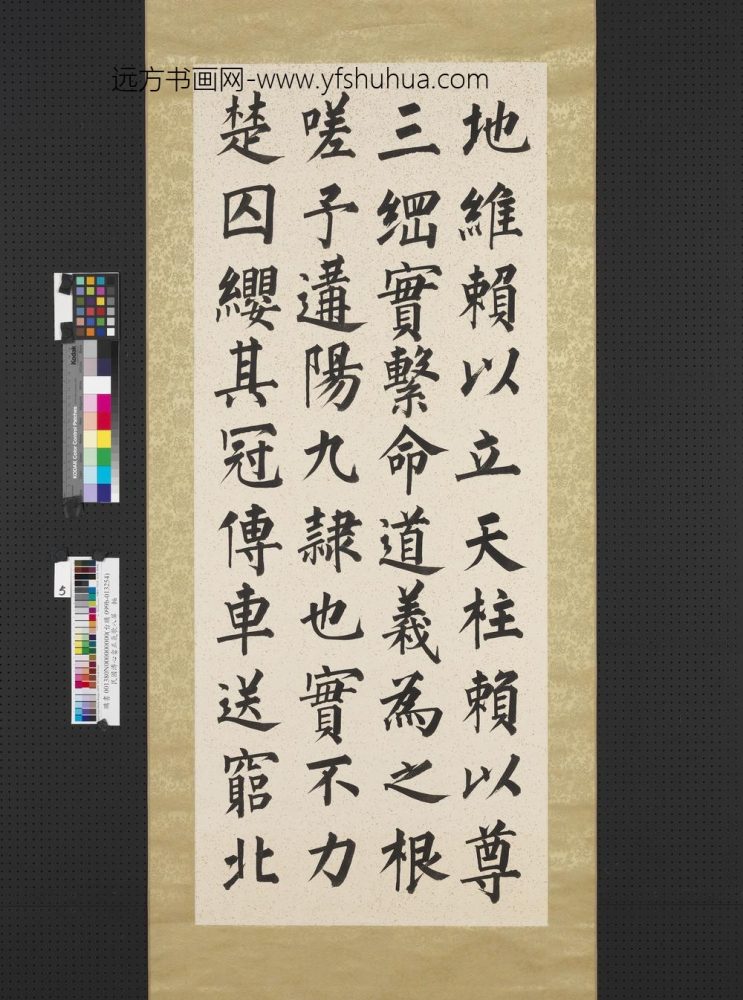 远方书画网-www.yfshuhua.com
地維賴以立天柱賴以尊
三綱實繫命道義為之根
嗟予遘陽九隷也實不力
楚囚纓其冠傳車送窮北
Kodak
KODAK Color Control Patches
5